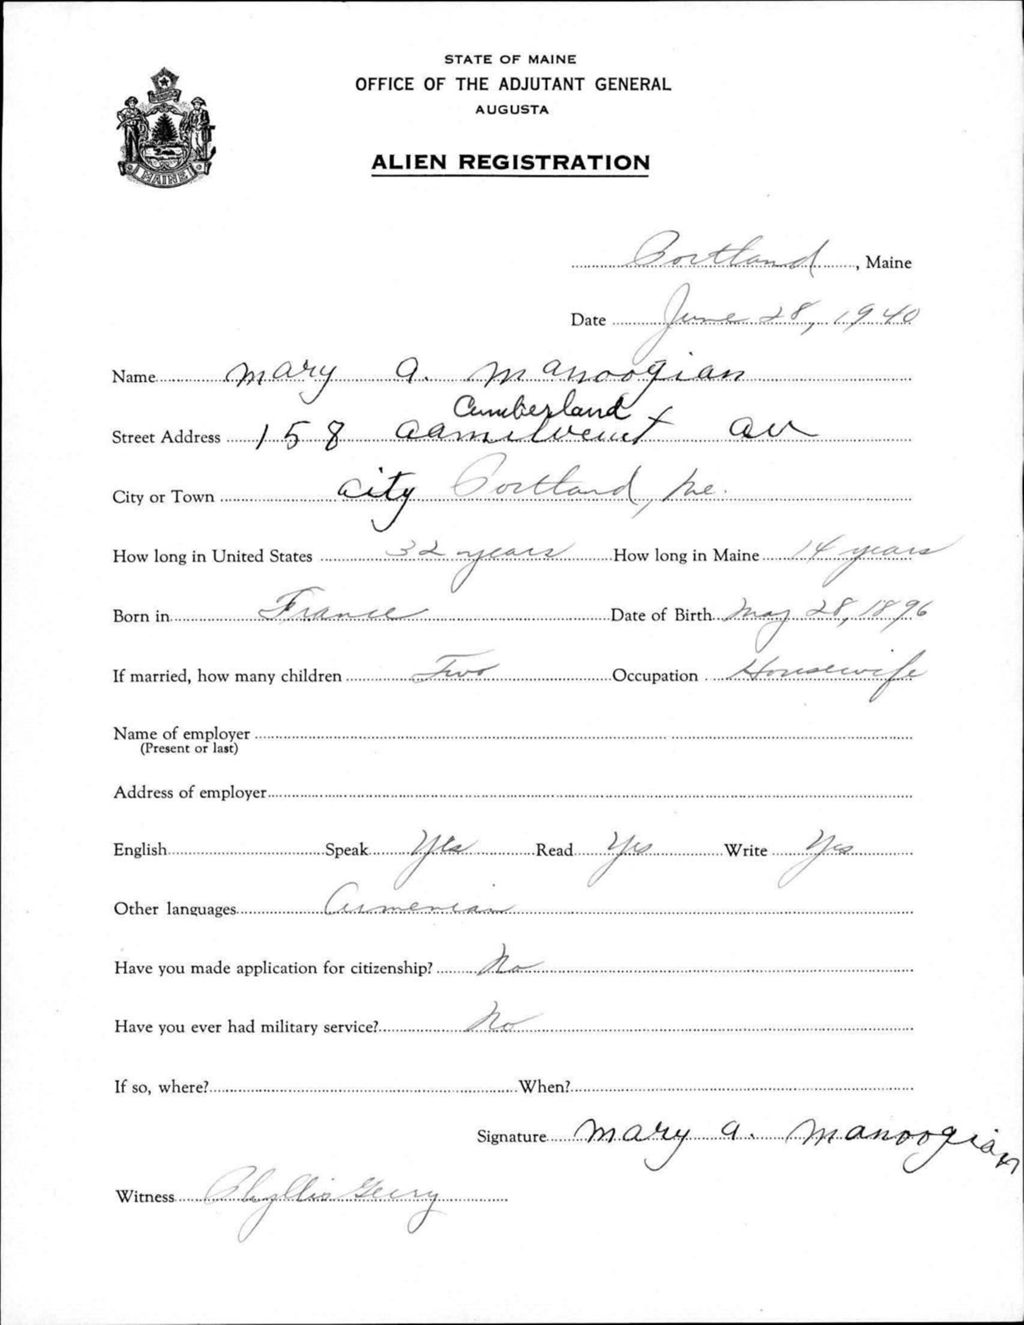 STATE OF MAINE
OFFICE OF THE ADJUTANT GENERAL
AUGUSTA
MAINE
ALIEN REGISTRATION
Portland, Maine
Date June 28, 1940
Name Mary A. Manoogian
Cumberland
Street Address 158 av
City or Town City Portland, Me.
How long in United States 32 years How long in Maine 14 years
Born in France Date of Birth May 28, 1896
If married, how many children Two Occupation Housewife
Name of employer
(Present or last)
Address of employer
English Speak Yes Read Yes Write Yes
Other languages Armenian
Have you made application for citizenship? No
Have you ever had military service? No
If so, where? When?
Signature Mary A. Manoogian
Witness Phyllis Geery